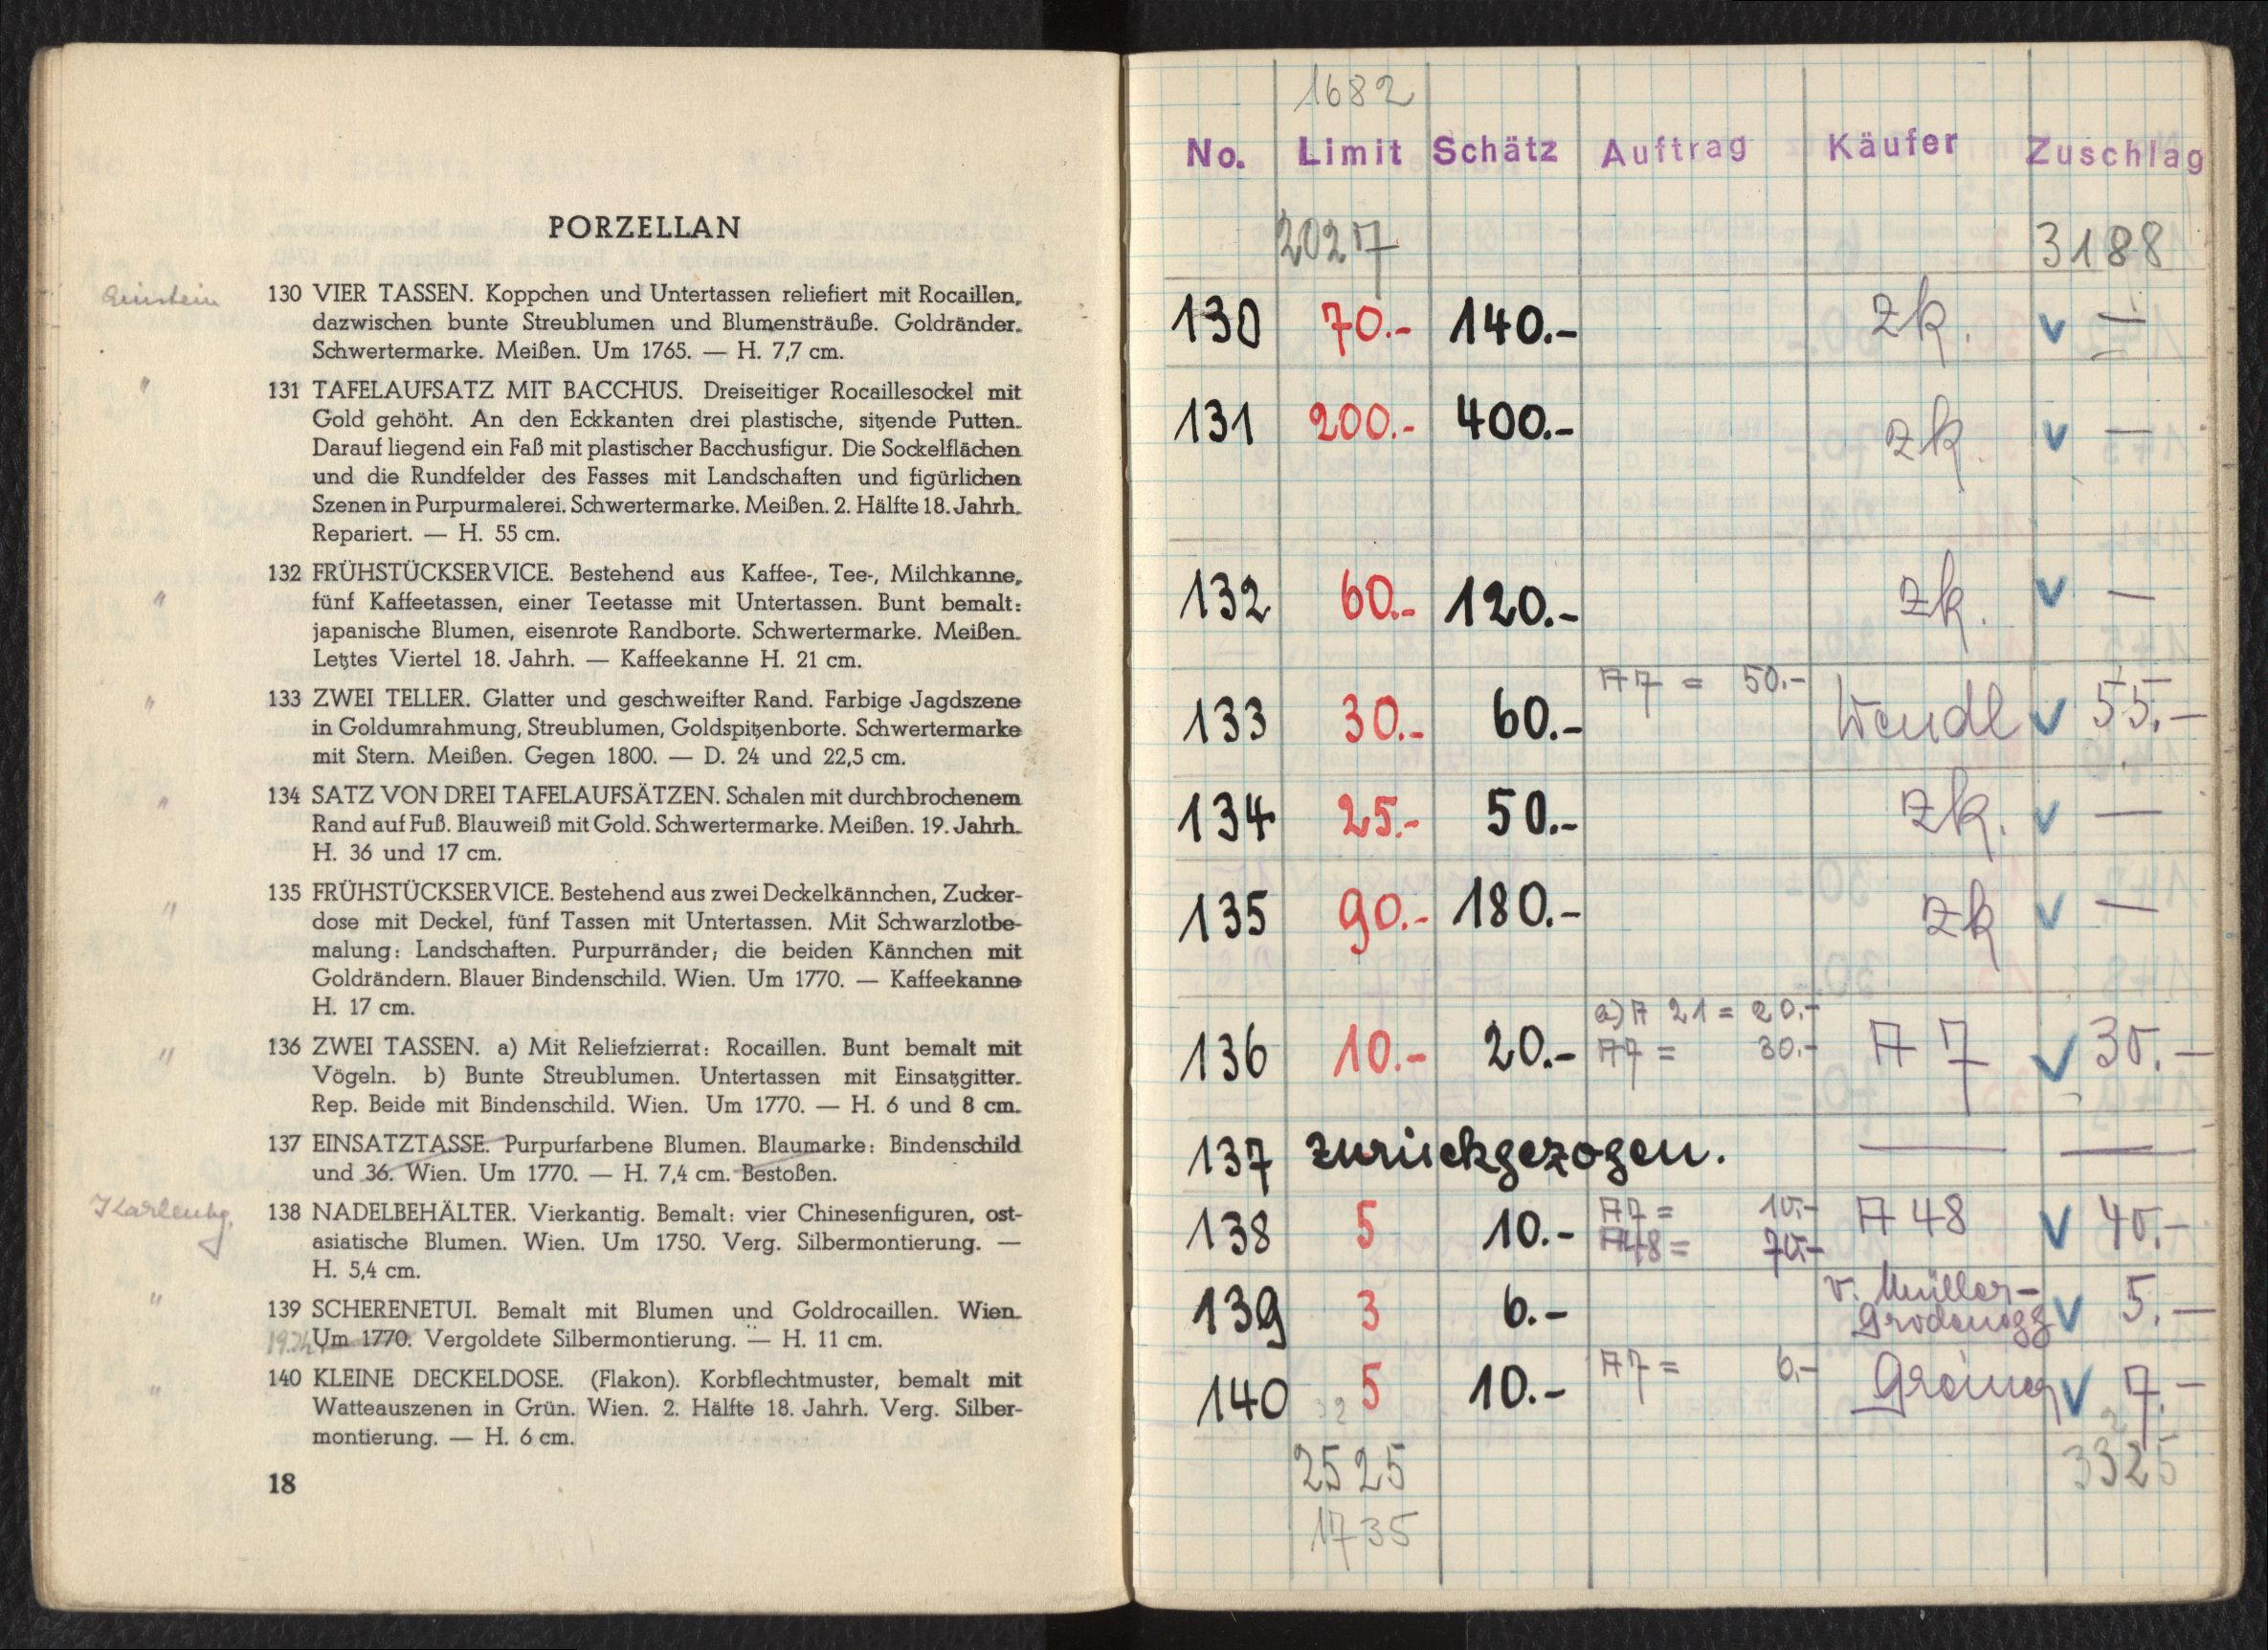 PORZELLAN
130 VIER TASSEN. Koppchen und Untertassen reliefiert mit Rocaillen,
dazwischen bunte Streublumen und Blumensträuße. Goldränder.
Schwertermarke. Meißen. Um 1765. — H. 7,7 cm.
"
131 TAFELAUFSATZ MIT BACCHUS. Dreiseitiger Rocaillesockel mit
Gold gehöht. An den Eckkanten drei plastische, sitzende Putten.
Darauf liegend ein Faß mit plastischer Bacchusfigur. Die Sockelflächen
und die Rundfelder des Fasses mit Landschaften und figürlichen
Szenen in Purpurmalerei. Schwertermarke. Meißen. 2. Hälfte 18. Jahrh.
Repariert. — H. 55 cm.
132 FRÜHSTÜCKSERVICE. Bestehend aus Kaffee-, Tee-, Milchkanne,
" fünf Kaffeetassen, einer Teetasse mit Untertassen. Bunt bemalt:
japanische Blumen, eisenrote Randborte. Schwertermarke. Meißen.
Letztes Viertel 18. Jahrh. — Kaffeekanne H. 21 cm.
" 133 ZWEI TELLER. Glatter und geschweifter Rand. Farbige Jagdszene
in Goldumrahmung, Streublumen, Goldspitzenborte. Schwertermarke
mit Stern. Meißen. Gegen 1800. — D. 24 und 22,5 cm.
" 134 SATZ VON DREI TAFELAUFSÄTZEN. Schalen mit durchbrochenem
Rand auf Fuß. Blauweiß mit Gold. Schwertermarke. Meißen. 19. Jahrh.
H. 36 und 17 cm.
" 135 FRÜHSTÜCKSERVICE. Bestehend aus zwei Deckelkännchen, Zucker-
dose mit Deckel, fünf Tassen mit Untertassen. Mit Schwarzlotbe-
malung: Landschaften. Purpurränder; die beiden Kännchen mit
Goldrändern. Blauer Bindenschild. Wien. Um 1770. — Kaffeekanne
H. 17 cm.
" 136 ZWEI TASSEN. a) Mit Reliefzierrat: Rocaillen. Bunt bemalt mit
Vögeln. b) Bunte Streublumen. Untertassen mit Einsatzgitter.
Rep. Beide mit Bindenschild. Wien. Um 1770. — H. 6 und 8 cm.
137 EINSATZTASSE. Purpurfarbene Blumen. Blaumarke: Bindenschild
und 36. Wien. Um 1770. — H. 7,4 cm. Bestoßen.
138 NADELBEHÄLTER. Vierkantig. Bemalt: vier Chinesenfiguren, ost-
asiatische Blumen. Wien. Um 1750. Verg. Silbermontierung. —
H. 5,4 cm.
" 139 SCHERENETUI. Bemalt mit Blumen und Goldrocaillen. Wien.
Um 1770. Vergoldete Silbermontierung. — H. 11 cm.
" 140 KLEINE DECKELDOSE. (Flakon). Korbflechtmuster, bemalt mit
Watteauszenen in Grün. Wien. 2. Hälfte 18. Jahrh. Verg. Silber-
montierung. — H. 6 cm.
18
1682
No. Limit Schätz Auftrag Käufer Zuschlag
2027 3188
130 70.- 140.- zk. v —
131 200.- 400.- zk. v —
132 60.- 120.- zk. v —
A7 = 50.-
133 30.- 60.- Wendl v 55.—
134 25.- 50.- zk. v —
135 90.- 180.- zk v —
a) A 21 = 20.-
136 10.- 20.- A7 = 30.- A 7 v 30.—
137 zurückgezogen. — —
A7 = 10.-
138 5 10.- A48 = 70.- A 48 v 40.-
v. Müller-
139 3 6.- v 5.—
A7 = 6.-
140 5 10.- v 7.-
32
2525 3325
1735